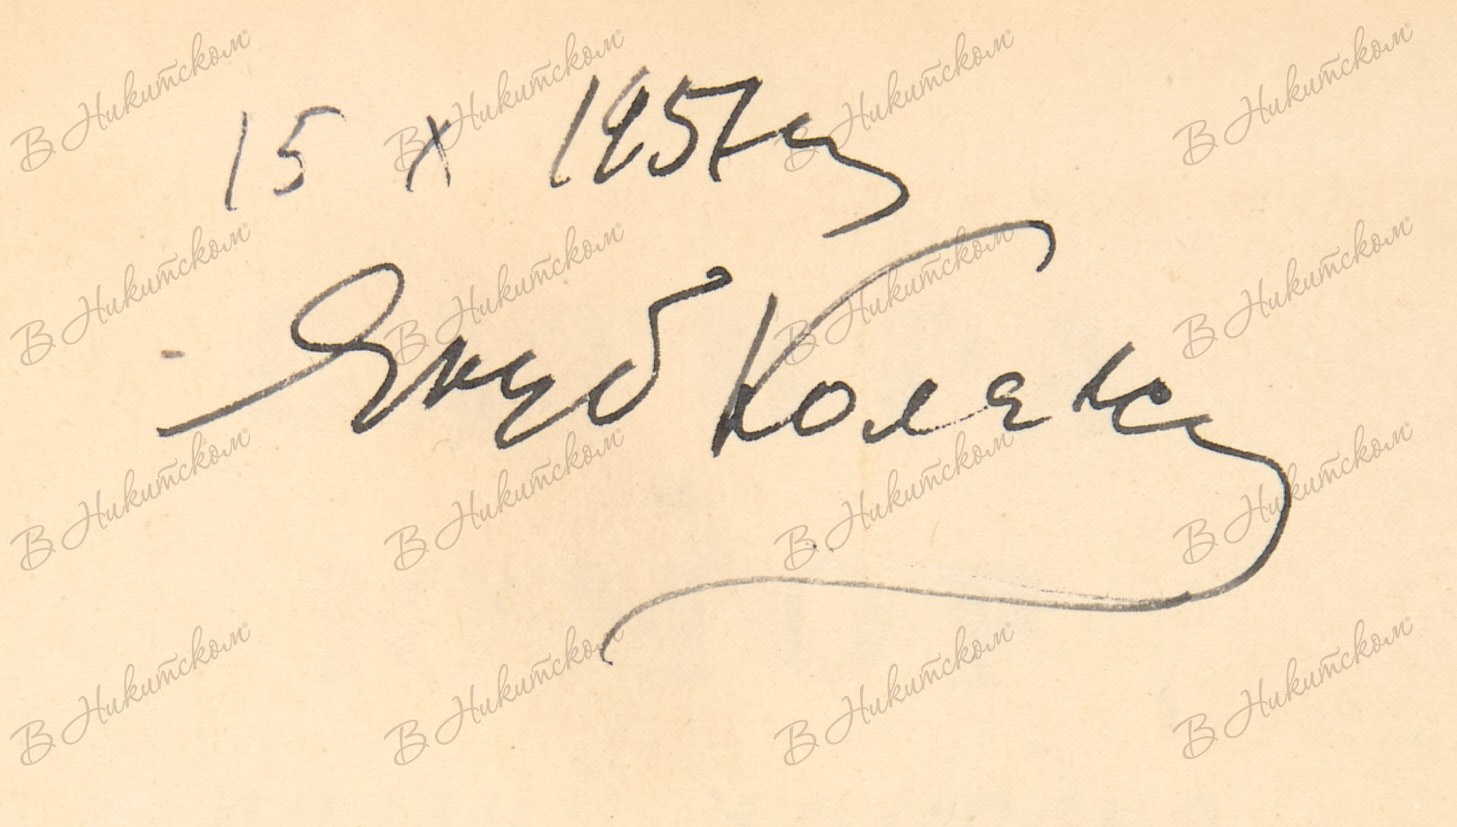 В Никитском® В Никитском® В Никитском® В Никитском®
15 X 1951 г
В Никитском® В Никитском® В Никитском® В Никитском®
Якуб Колас
В Никитском® В Никитском® В Никитском® В Никитском®
В Никитском® В Никитском® В Никитском® В Никитском®